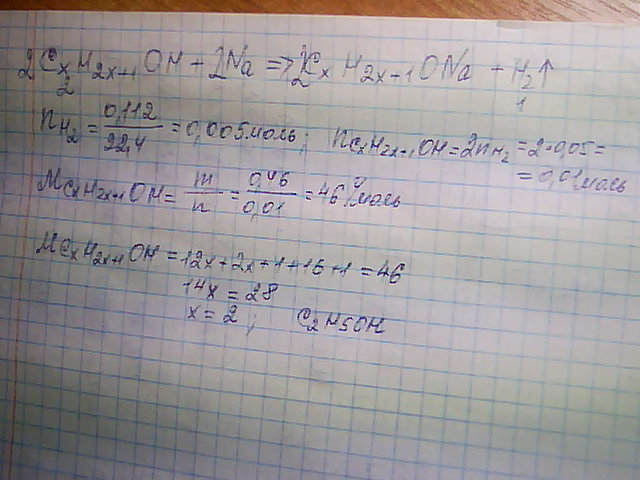 2CxH2x+1OH + 2Na => 2CxH2x+1ONa + H2↑
2 2 1
nH2 = 0,112/22,4 = 0,005моль; nCxH2x+1OH = 2nH2 = 2·0,05=
= 0,01моль
MCxH2x+1OH = m/n = 0,46/0,01 = 46 г/моль
MCxH2x+1OH = 12x+2x+1+16+1 = 46
14x = 28
x = 2; C2H5OH